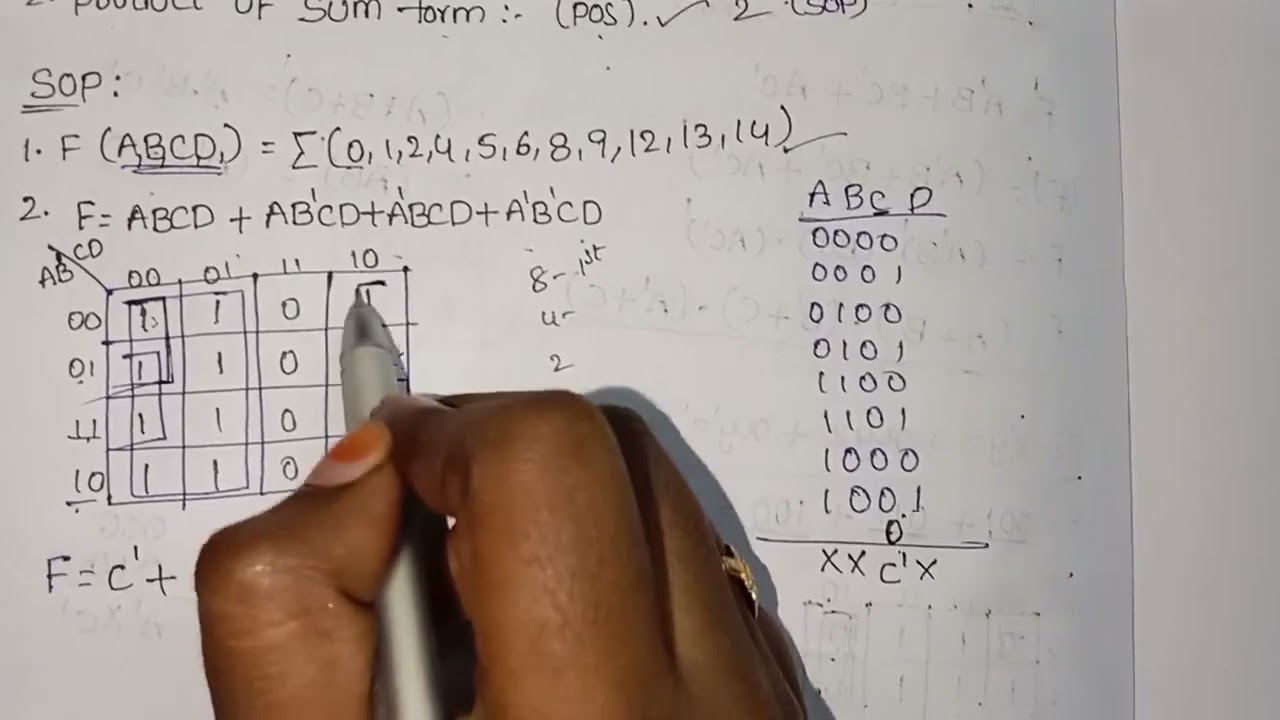 2. PRODUCT OF SUM form :- (POS). ✓ 2 (SOP)
SOP:
1. F (A,B,C,D,) = Σ (0,1,2,4,5,6,8,9,12,13,14) ✓
2. F= ABCD + AB'CD+A'BCD+A'B'CD
AB CD
00 01 11 10
00 1 1 0 1
01 1 1 0
11 1 1 0
10 1 1 0
8- 1st
4-
2
A B C D
0000
0001
0100
0101
1100
1101
1000
1001
0
X X C' X
F = C' +